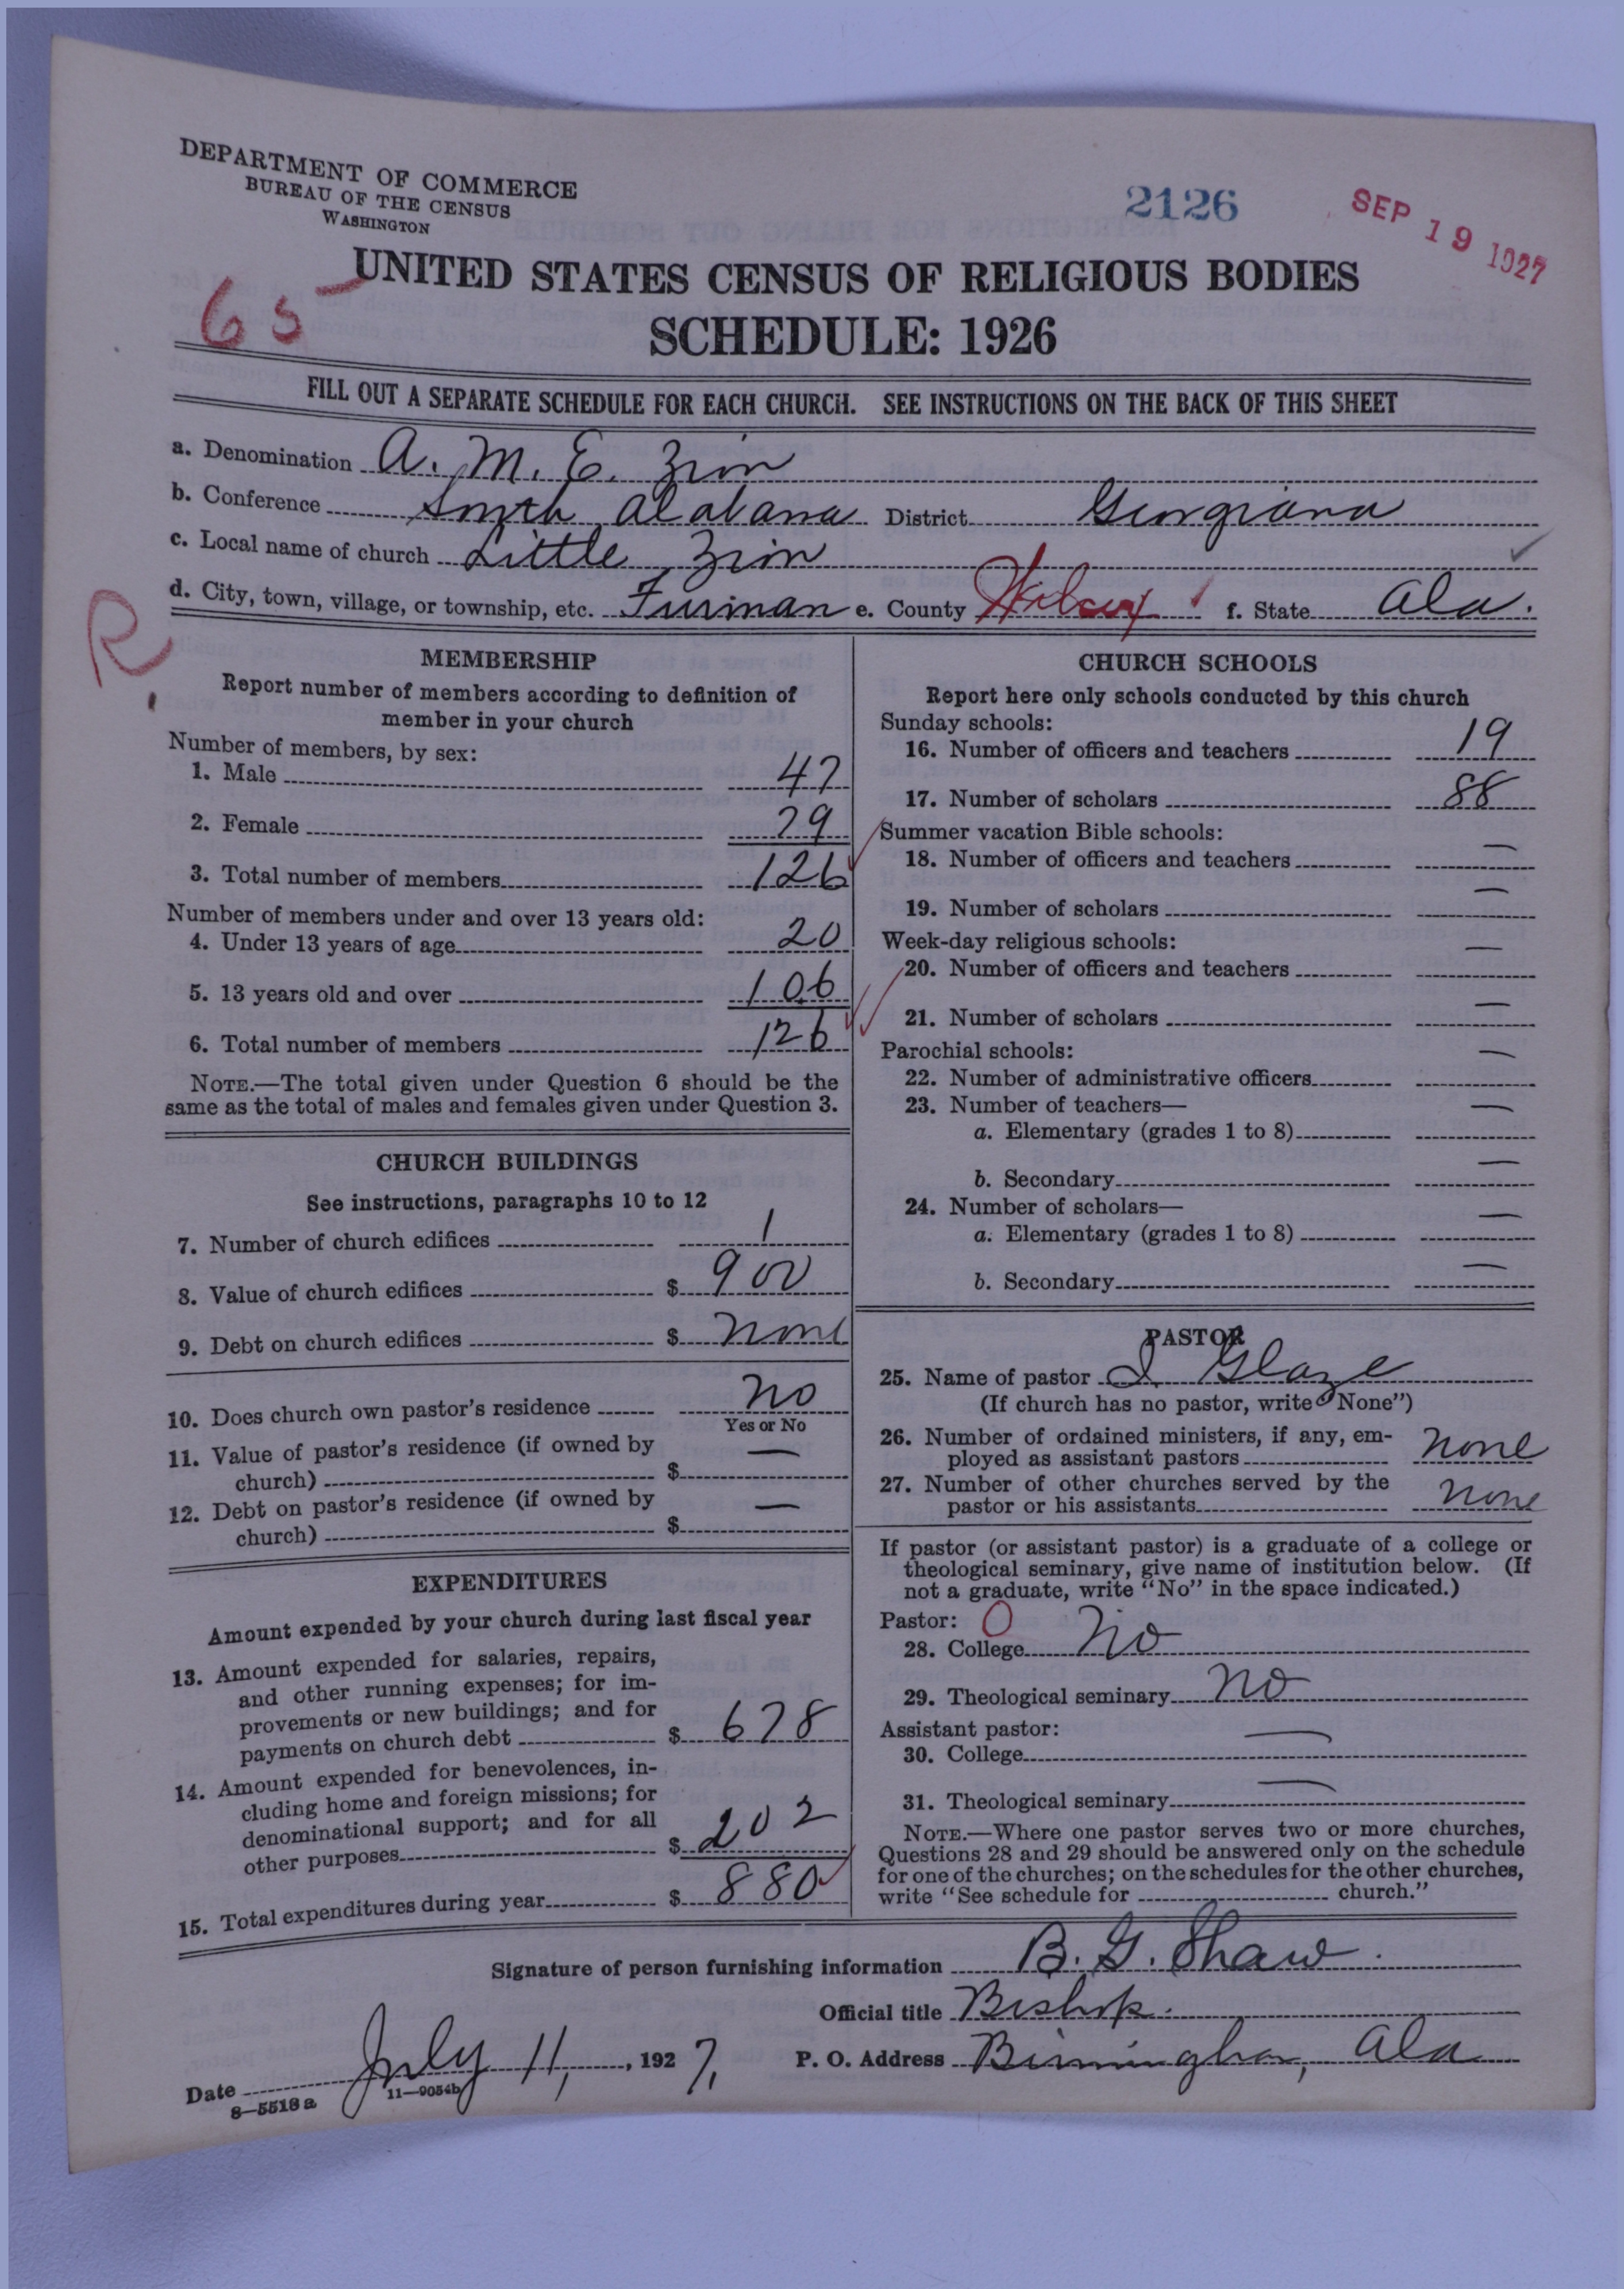 DEPARTMENT OF COMMERCE
BUREAU OF THE CENSUS
WASHINGTON
2126
SEP 19 1927
65
UNITED STATES CENSUS OF RELIGIOUS BODIES
SCHEDULE: 1926
FILL OUT A SEPARATE SCHEDULE FOR EACH CHURCH. SEE INSTRUCTIONS ON THE BACK OF THIS SHEET
a. Denomination A. M. E. Zion
b. Conference South Alabama District Georgiana
c. Local name of church Little Zion
d. City, town, village, or township, etc. Furman e. County Wilcox f. State Ala.
R
MEMBERSHIP
Report number of members according to definition of
member in your church
Number of members, by sex:
1. Male 47
2. Female 79
3. Total number of members 126
Number of members under and over 13 years old:
4. Under 13 years of age 20
5. 13 years old and over 106
6. Total number of members 126
NOTE.—The total given under Question 6 should be the
same as the total of males and females given under Question 3.
CHURCH BUILDINGS
See instructions, paragraphs 10 to 12
7. Number of church edifices 1
8. Value of church edifices $ 900
9. Debt on church edifices $ None
10. Does church own pastor's residence No
Yes or No
11. Value of pastor's residence (if owned by
church) $ —
12. Debt on pastor's residence (if owned by
church) $ —
EXPENDITURES
Amount expended by your church during last fiscal year
13. Amount expended for salaries, repairs,
and other running expenses; for im-
provements or new buildings; and for
payments on church debt $ 678
14. Amount expended for benevolences, in-
cluding home and foreign missions; for
denominational support; and for all
other purposes $ 202
15. Total expenditures during year $ 880
CHURCH SCHOOLS
Report here only schools conducted by this church
Sunday schools:
16. Number of officers and teachers 19
17. Number of scholars 88
Summer vacation Bible schools:
18. Number of officers and teachers —
19. Number of scholars —
Week-day religious schools:
20. Number of officers and teachers —
21. Number of scholars —
Parochial schools:
22. Number of administrative officers —
23. Number of teachers—
a. Elementary (grades 1 to 8) —
b. Secondary —
24. Number of scholars—
a. Elementary (grades 1 to 8) —
b. Secondary —
PASTOR
25. Name of pastor I. Glaze
(If church has no pastor, write "None")
26. Number of ordained ministers, if any, em-
ployed as assistant pastors None
27. Number of other churches served by the
pastor or his assistants None
If pastor (or assistant pastor) is a graduate of a college or
theological seminary, give name of institution below. (If
not a graduate, write "No" in the space indicated.)
Pastor: 0
28. College No
29. Theological seminary No
Assistant pastor:
30. College —
31. Theological seminary —
NOTE.—Where one pastor serves two or more churches,
Questions 28 and 29 should be answered only on the schedule
for one of the churches; on the schedules for the other churches,
write "See schedule for church."
Signature of person furnishing information B. G. Shaw.
Official title Bishop.
Date July 11, 1927, P. O. Address Birmingham, Ala
8—5518 a 11—9054b